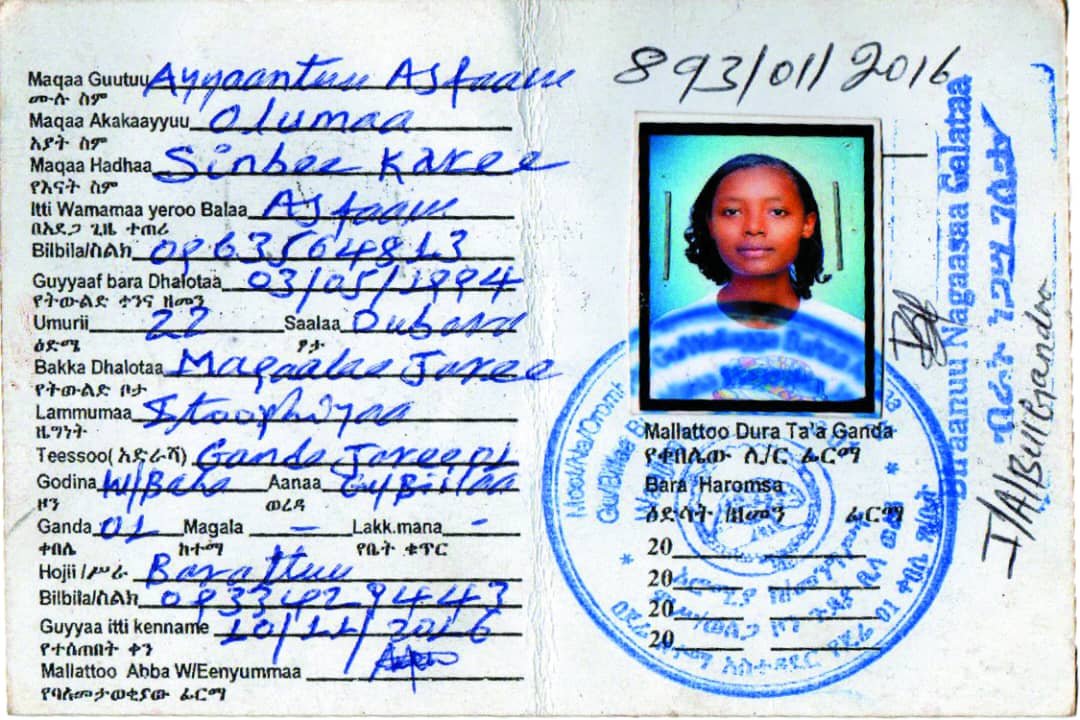 Maqaa Guutuu Ayyaantuu Asfaaw
ሙሉ ስም
Maqaa Akakaayyuu Olumaa
አያት ስም
Maqaa Hadhaa Sinbee Karee
የእናት ስም
Itti Wamamaa yeroo Balaa Asfaaw
በአደጋ ጊዜ ተጠሪ
Bilbila/ስልክ 0963564813
Guyyaaf bara Dhalotaa 03/05/1994
የትውልድ ቀንና ዘመን
Umurii 22 Saalaa Dubara
ዕድሜ ፆታ
Bakka Dhalotaa Magaalaa Jaree
የትውልድ ቦታ
Lammumaa Itoophiyaa
ዜግነት
Teessoo( አድራሻ) Ganda Jareeni
Godina W/Baha Aanaa Gu/Biilaa
ዞን ወረዳ
Ganda 01 Magala - Lakk.mana -
ቀበሌ ከተማ የቤት ቁጥር
Hojii /ሥራ Barattuu
Bilbila/ስልክ
Guyyaa itti kenname 10/11/2016
የተሰጠበት ቀን
Mallattoo Abba W/Eenyummaa
የባለመታወቂያው ፊርማ
893/01/2016
Buaanuu Nagaasaa Galataa
I/A/Bul/Gandaa
Mallattoo Dura Ta'a Ganda
የቀበሌው ሊ/ር ፊርማ
Bara Haromsa
ዕድሳት /ዘመን ፊርማ
20
20
20
20